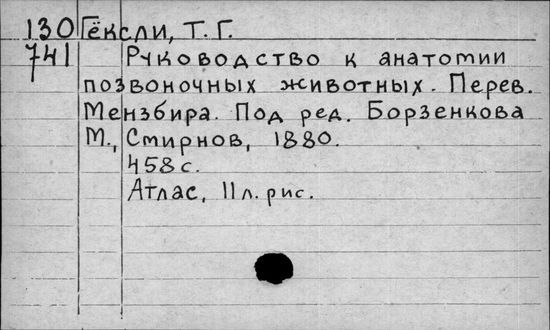 130 Гёксли, Т. Г.
741 Руководство к анатомии
позвоночных животных. Перев.
Мензбира. Под ред. Борзенкова
М., Смирнов, 1880.
458 с.
Атлас, 11 л. рис.